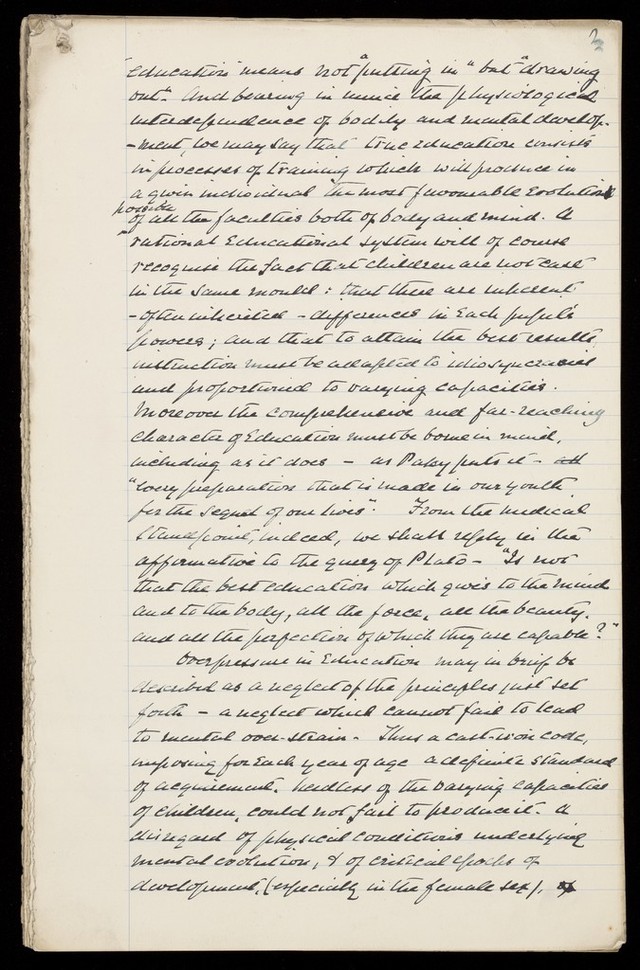 2
"education" means not "a putting in" but "drawing
out". And bearing in mind the physiological
interdependence of bodily and mental develop-
-ment, we may say that true education consists
in processes of training which will produce in
a given individual the most favourable evolution
possible
of all the faculties both of body and mind. A
rational Educational system will of course
recognise the fact that children are not cast
in the same mould: that there are inherent
- often inherited - differences in each pupil's
powers; and that to attain the best results,
instruction must be adapted to idiosyncracies
and proportioned to varying capacities.
Moreover the comprehensive and far-reaching
character of Education must be borne in mind,
including as it does - as Paley puts it -
"every preparation that is made in our youth
for the sequel of our lives". From the medical
standpoint, indeed, we shall reply in the
affirmative to the query of Plato - "Is not
that the best education which gives to the mind
and to the body, all the force, all the beauty,
and all the perfection of which they are capable?"
Overpressure in Education may in brief be
described as a neglect of the principles just set
forth - a neglect which cannot fail to lead
to mental over-strain. Thus a cast-iron code,
imposing for each year of age a definite standard
of acquirement, heedless of the varying capacities
of children, could not fail to produce it. A
disregard of physical conditions underlying
mental evolution, & of critical epochs of
development, (especially in the female sex),